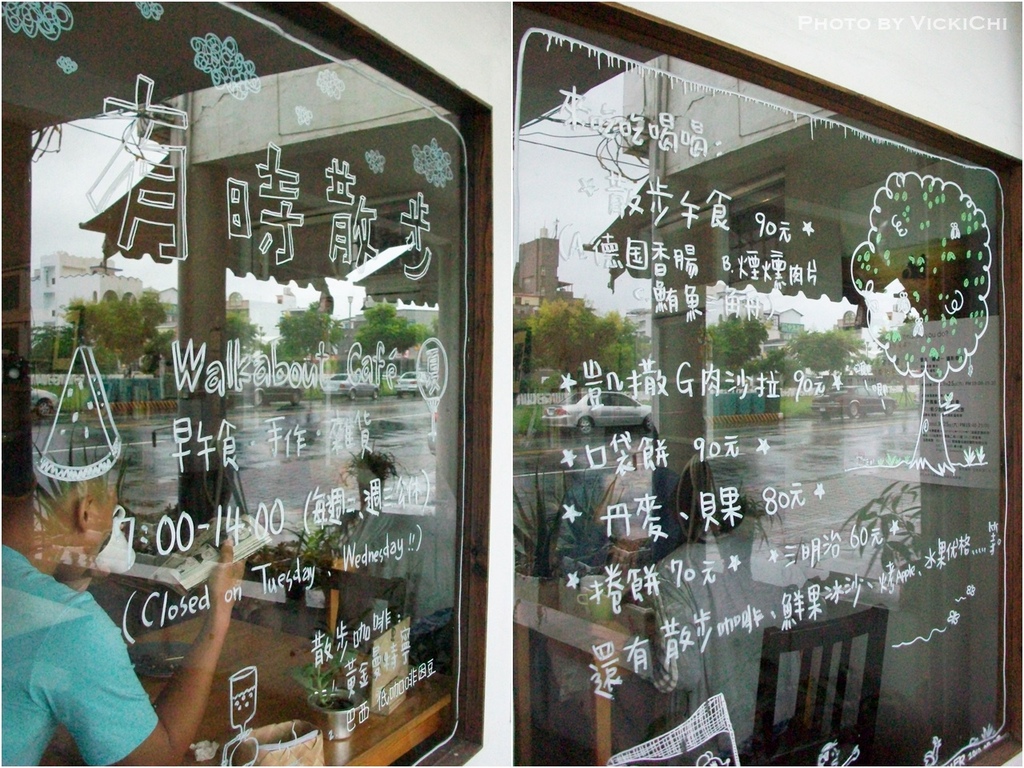 有時散步
Walkabout Café
早午食 手作 雜貨
7:00-14:00 (每週二、週三公休)
(Closed on Tuesday、Wednesday!!)
散步咖啡:
黃金曼特寧
巴西 低咖啡因豆
PHOTO BY VICKICHI
來吃吃喝喝:
散步午食 90元
(A.德国香腸 B.煙燻肉片
鮪魚
凱撒G肉沙拉 90元
口袋餅 90元
丹麥、貝果 80元
捲餅 70元 三明治 60元
還有散步咖啡、鮮果冰沙、烤Apple、水果优格.....等。